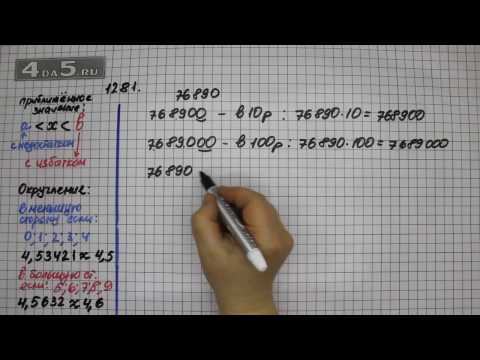 4DA5.RU
1281.
приближённое
значение:
a < x < b
с недостатком
с избытком
Округление:
в меньшую
сторону если:
0; 1; 2; 3; 4
4,53421 ≈ 4,5
в большую ст.
если: 5; 6; 7; 8; 9
4,5632 ≈ 4,6
76890
768900 - в 10р : 76890·10=768900
7689000 - в 100р : 76890·100=7689000
76890